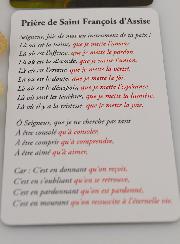 Prière de Saint François d'Assise
Seigneur, fais de moi un instrument de ta paix !
Là où est la haine, que je mette l'amour.
Là où est l'offense, que je mette le pardon.
Là où est la discorde, que je mette l'union.
Là où est l'erreur, que je mette la vérité.
Là où est le doute, que je mette la foi.
Là où est le désespoir, que je mette l'espérance.
Là où sont les ténèbres, que je mette la lumière.
Là où il y a la tristesse, que je mette la joie.
Ô Seigneur, que je ne cherche pas tant
À être consolé qu'à consoler,
À être compris qu'à comprendre,
À être aimé qu'à aimer,
Car : C'est en donnant qu'on reçoit,
C'est en s'oubliant qu'on se retrouve,
C'est en pardonnant qu'on est pardonné,
C'est en mourant qu'on ressuscite à l'éternelle vie.